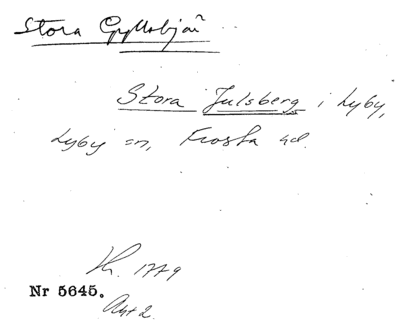 Stora Gyllsbjär
Stora Julsberg i Lyby,
Lyby sn, Frosta hd.
Kt. 1779
Nr 5645.
Akt 2.